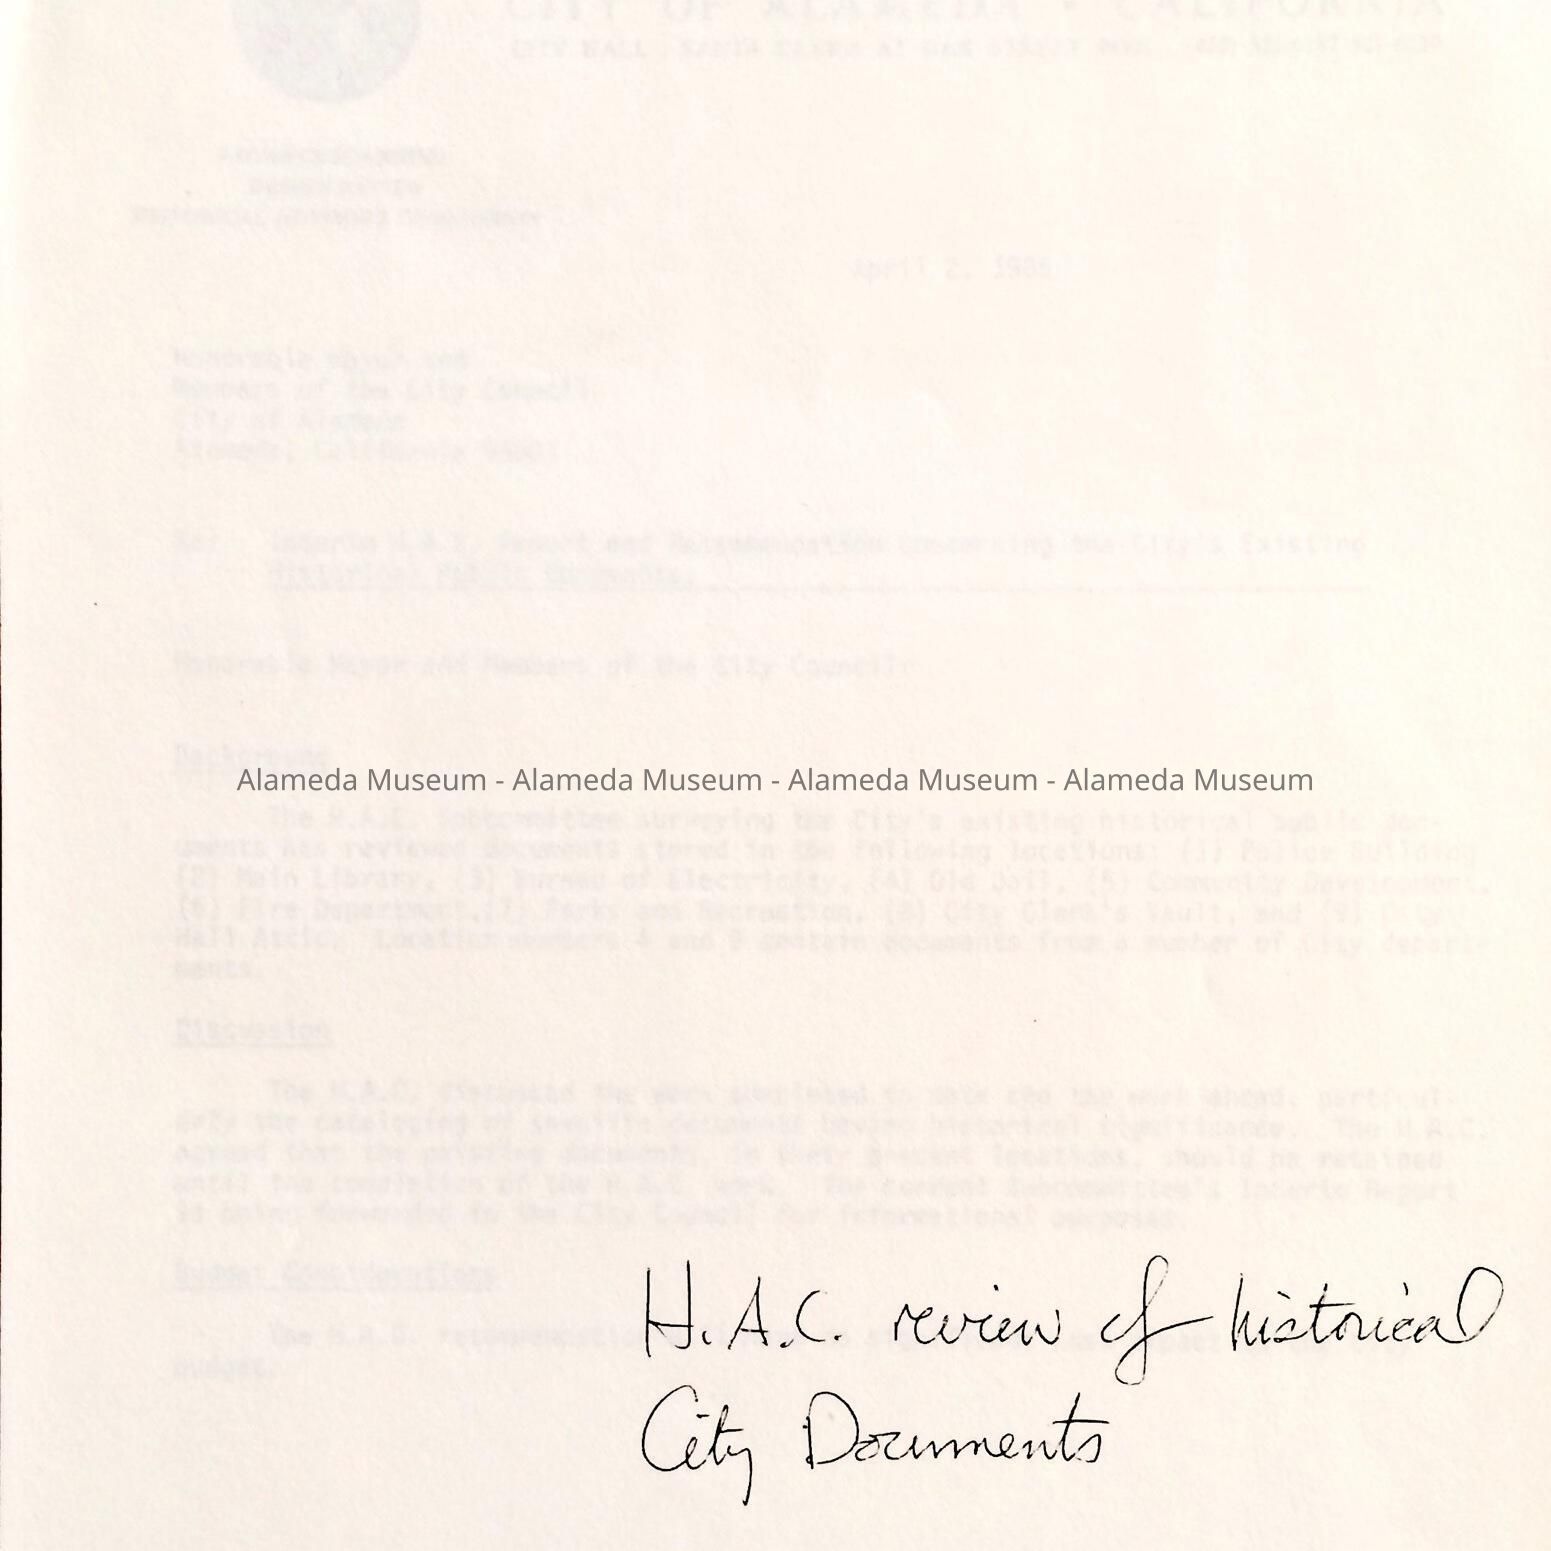 CITY OF ALAMEDA • CALIFORNIA
CITY HALL
April 2,
Honorable Mayor and
Members of the City Council
City of Alameda
Alameda, California
Re: Interim H.A.C. Report and Recommendation Concerning the City's Existing
Historical Public Documents.
Honorable Mayor and Members of the City Council:
Background
Alameda Museum - Alameda Museum - Alameda Museum - Alameda Museum
The H.A.C. Subcommittee surveying the City's existing historical public doc-
uments has reviewed documents stored in the following locations: (1) Police Building
(2) Main Library, (3) Bureau of Electricity, (4) Old Jail, (5) Community Development,
(6) Fire Department, (7) Parks and Recreation, (8) City Clerk's Vault, and (9) City
Hall Attic. Location numbers 4 and 9 contain documents from a number of City depart-
ments.
Discussion
The H.A.C. discussed the work completed to date and the work ahead, particul-
arly the cataloging of specific documents having historical significance. The H.A.C.
agreed that the existing documents, in their present locations, should be retained
until the completion of the H.A.C. work. The current Subcommittee's Interim Report
is being forwarded to the City Council for informational purposes.
Budget Considerations
The H.A.C.
budget.
H.A.C. review of historical
City Documents